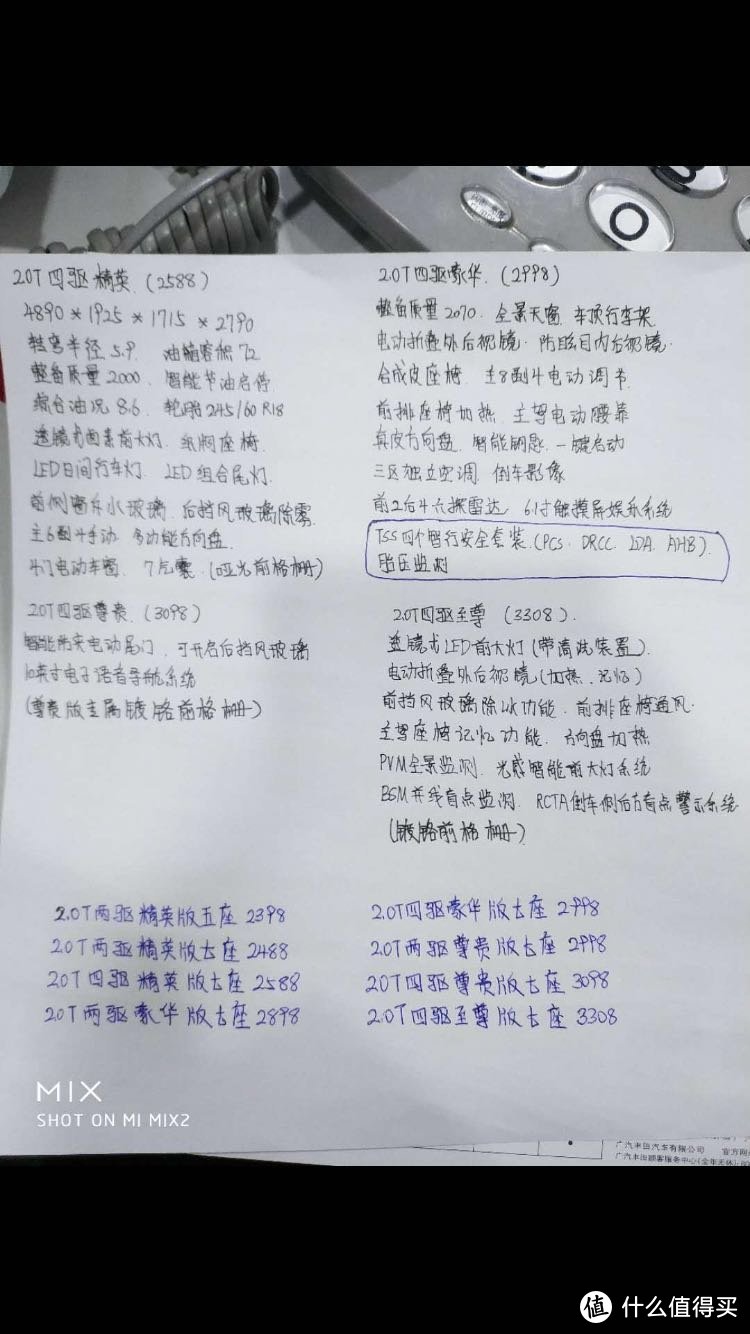 2.0T四驱精英.(2588)
4890*1925*1715*2790
转弯半径5.9. 油箱容积72
整备质量2000. 智能节油启停
综合油况8.6. 轮胎245/60 R18
透镜式卤素前大灯. 织物座椅.
LED日间行车灯. LED组合尾灯.
前侧窗斥水玻璃. 后挡风玻璃除雾.
主6副4手动 多功能方向盘.
4门电动车窗. 7气囊.(哑光前格栅)
2.0T四驱尊贵.(3098)
智能防夹电动尾门. 可开启后挡风玻璃
10英寸电子语音导航系统
(尊贵版专属镀铬前格栅)
2.0T四驱豪华.(2998)
整备质量2070. 全景天窗. 车顶行李架
电动折叠外后视镜. 防眩目内后视镜.
合成皮座椅. 主8副4电动调节.
前排座椅加热. 主驾电动腰靠
真皮方向盘. 智能钥匙. 一键启动
三区独立空调. 倒车影像
前2后4六探雷达 6.1寸触摸屏娱乐系统
TSS四个智行安全套装.(PCS. DRCC. LDA. AHB).
胎压监测
2.0T四驱至尊(3308).
透镜式LED前大灯(带清洗装置).
电动折叠外后视镜(加热.记忆)
前挡风玻璃除冰功能. 前排座椅通风.
主驾座椅记忆功能. 方向盘加热
PVM全景监测. 光感智能前大灯系统
BSM并线盲点监测. RCTA倒车侧后方盲点警示系统
(镀铬前格栅)
2.0T两驱精英版五座2398
2.0T两驱精英版七座2488
2.0T四驱精英版七座2588
2.0T两驱豪华版七座2898
2.0T四驱豪华版七座2998
2.0T两驱尊贵版七座2998
2.0T四驱尊贵版七座3098
2.0T四驱至尊版七座3308
MIX
SHOT ON MI MIX2
广汽丰田汽车有限公司 官方网
广汽丰田顾客服务中心(全年无休)
值 什么值得买